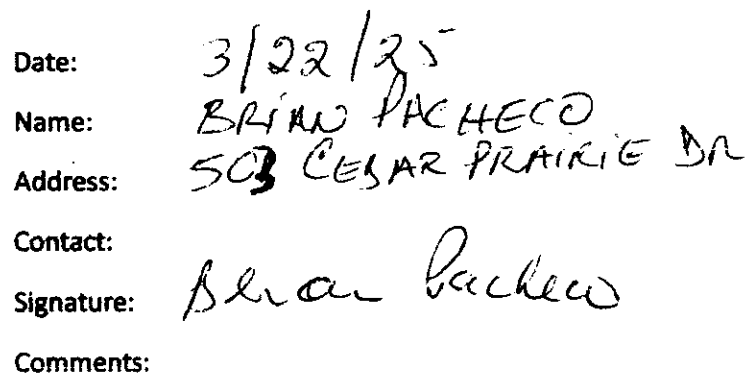 Date: 3/22/25
Name: BRIAN PACHECO
Address: 503 CEDAR PRAIRIE DR
Contact:
Signature: Brian Pacheco
Comments: